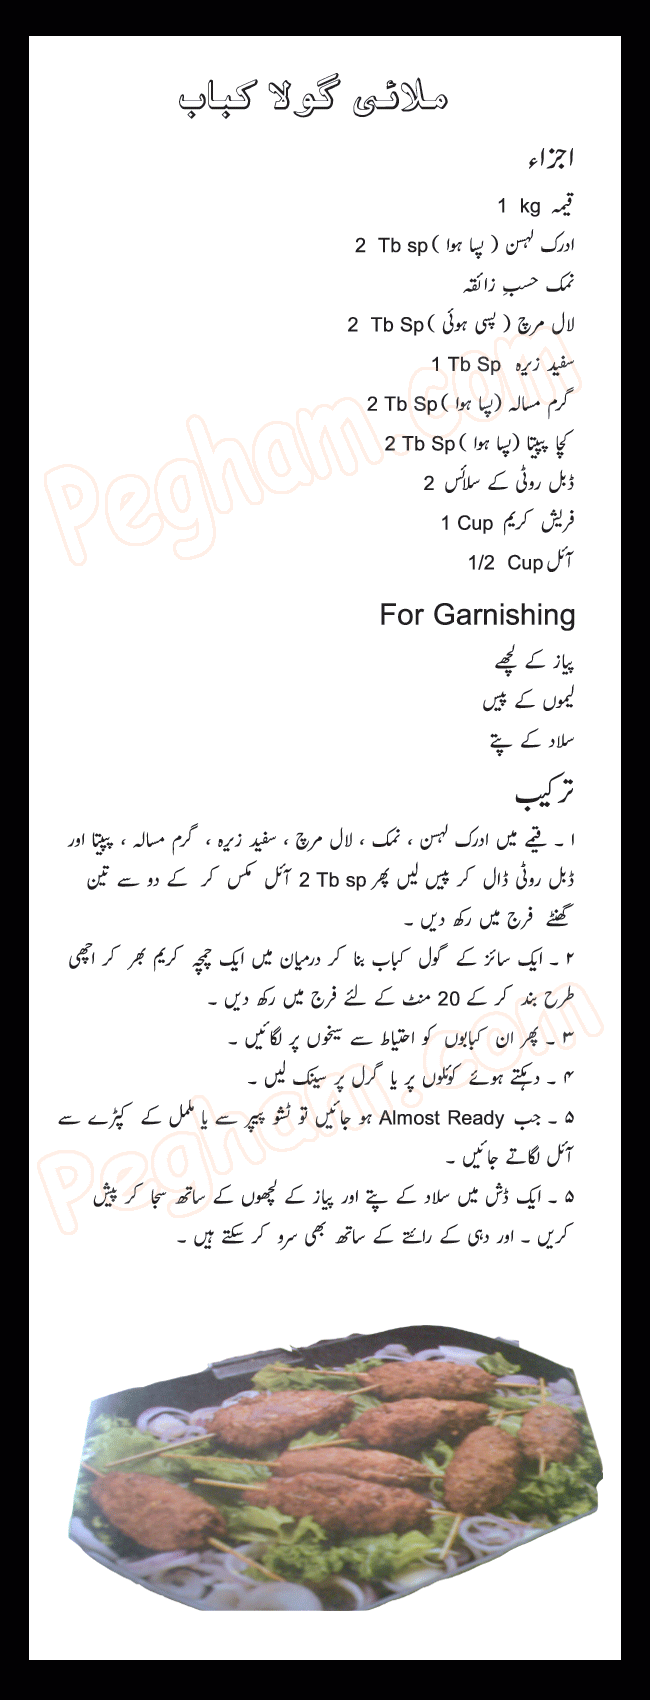 ملائی گولا کباب
اجزاء
قیمہ 1 kg
ادرک لہسن ( پسا ہوا ) 2 Tb sp
نمک حسبِ زائقہ
لال مرچ ( پسی ہوئی ) 2 Tb Sp
سفید زیرہ 1 Tb Sp
گرم مسالہ (پسا ہوا ) 2 Tb Sp
کچا پپیتا (پسا ہوا ) 2 Tb Sp
ڈبل روٹی کے سلائس 2
فریش کریم 1 Cup
آئل 1/2 Cup
For Garnishing
پیاز کے لچھے
لیموں کے پیس
سلاد کے پتے
ترکیب
۱ ۔ قیمے میں ادرک لہسن ، نمک ، لال مرچ ، سفید زیرہ ، گرم مسالہ ، پپیتا اور
ڈبل روٹی ڈال کر پیس لیں پھر 2 Tb sp آئل مکس کر کے دو سے تین
گھنٹے فرج میں رکھ دیں ۔
۲ ۔ ایک سائز کے گول کباب بنا کر درمیان میں ایک چمچہ کریم بھر کر اچھی
طرح بند کر کے 20 منٹ کے لئے فرج میں رکھ دیں ۔
۳ ۔ پھر ان کبابوں کو احتیاط سے سیخوں پر لگائیں ۔
۴ ۔ دہکتے ہوئے کوئلوں پر یا گرل پر سینک لیں ۔
۵ ۔ جب Almost Ready ہو جائیں تو ٹشو پیپر سے یا ململ کے کپڑے سے
آئل لگاتے جائیں ۔
۵ ۔ ایک ڈش میں سلاد کے پتے اور پیاز کے لچھوں کے ساتھ سجا کر پیش
کریں ۔ اور دہی کے رائتے کے ساتھ بھی سرو کر سکتے ہیں ۔
Pegham.com
Pegham.com